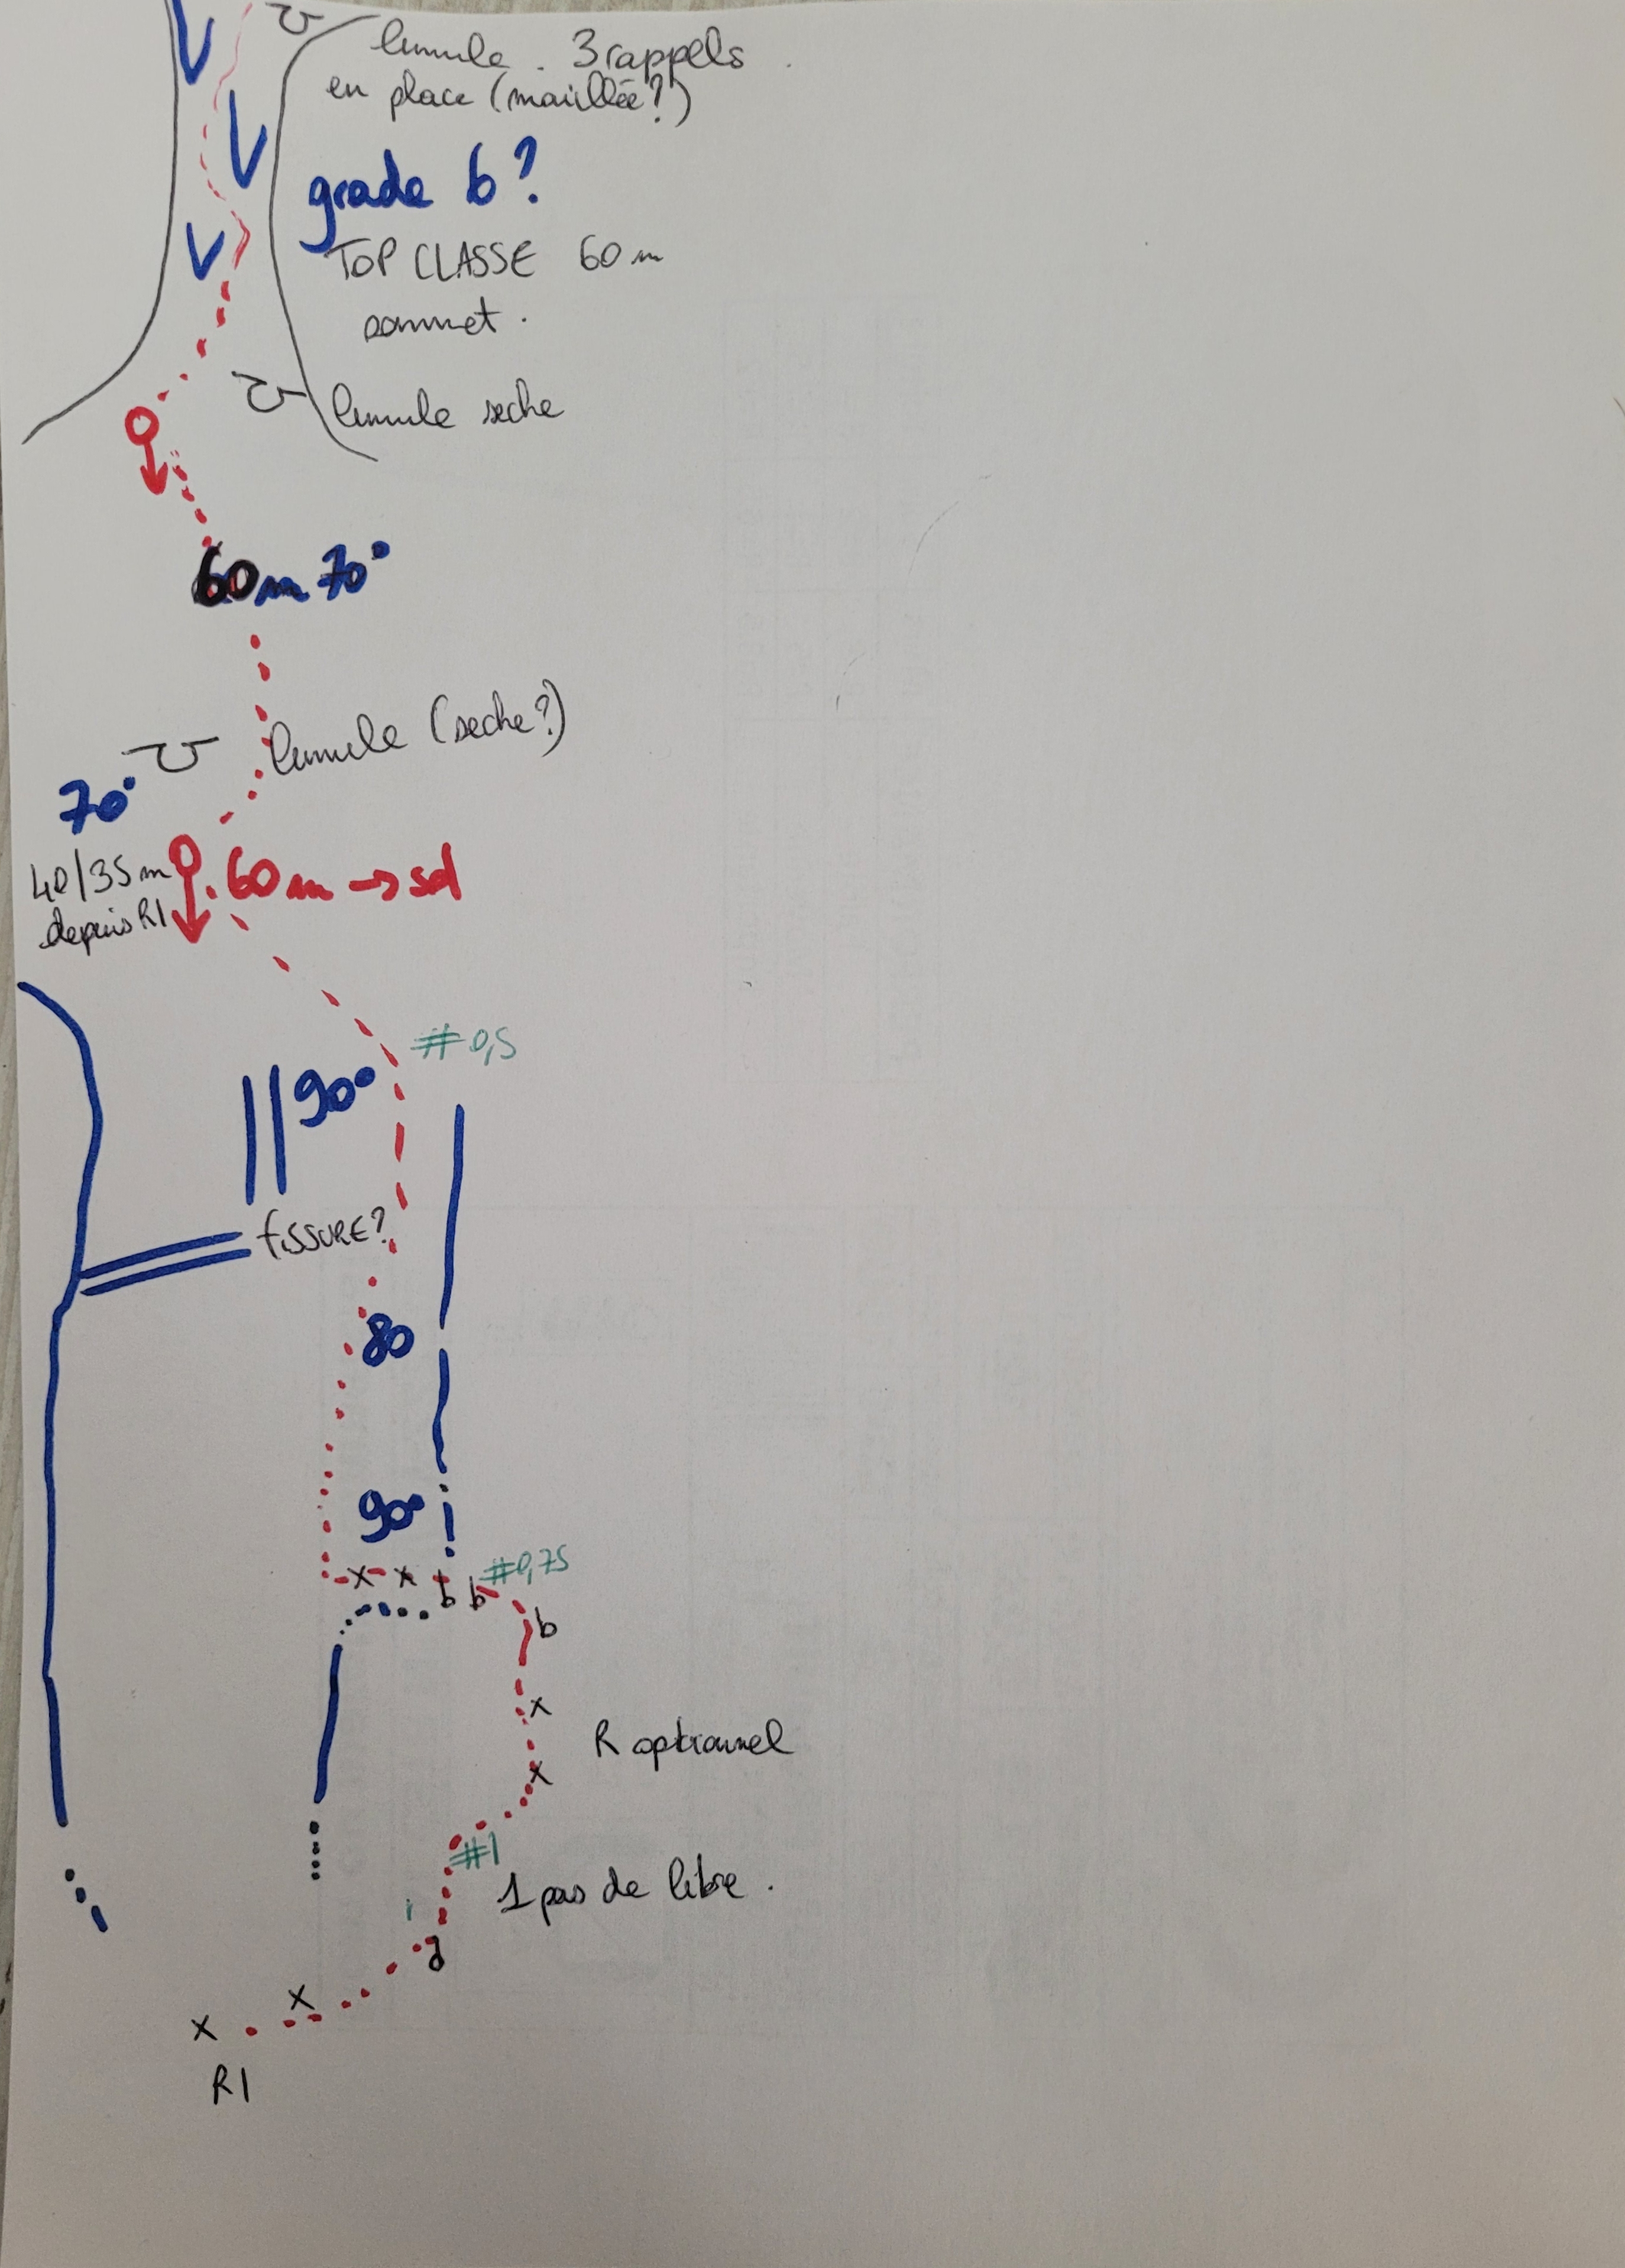 lunule. 3 rappels
en place (maillée?)
grade 6?
TOP CLASSE 60 m
sommet.
lunule seche
60m 70°
lunule (seche?)
70°
40/35m
depuis R1
60m → sol
#0,5
90°
fissure?
80
90°
#0,75
x x b b
b
x
R optionnel
x
#1
1 pas de libre.
x
x
R1